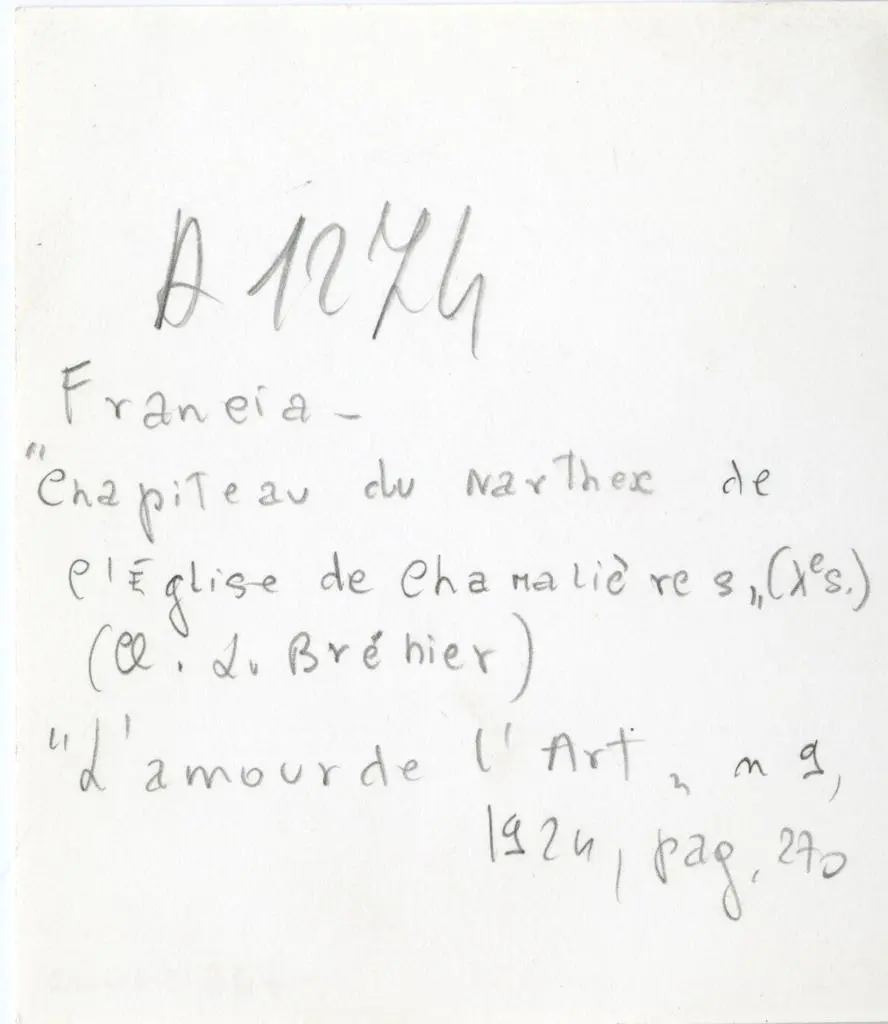 A 1274
Francia -
"Chapiteau du narthex de
l'Église de Chamalières„ (Xe s.)
(Cl. L. Bréhier)
"L'amour de l'Art„ n 9,
1924, pag. 270